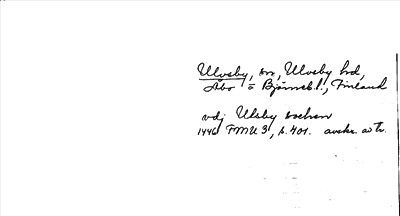 Ulvsby, sn, Ulvsby hd,
Åbo o Björneb. l., Finland
vdj Ulsby sochen
1446 FMU 3, s. 401. avskr. av tr.